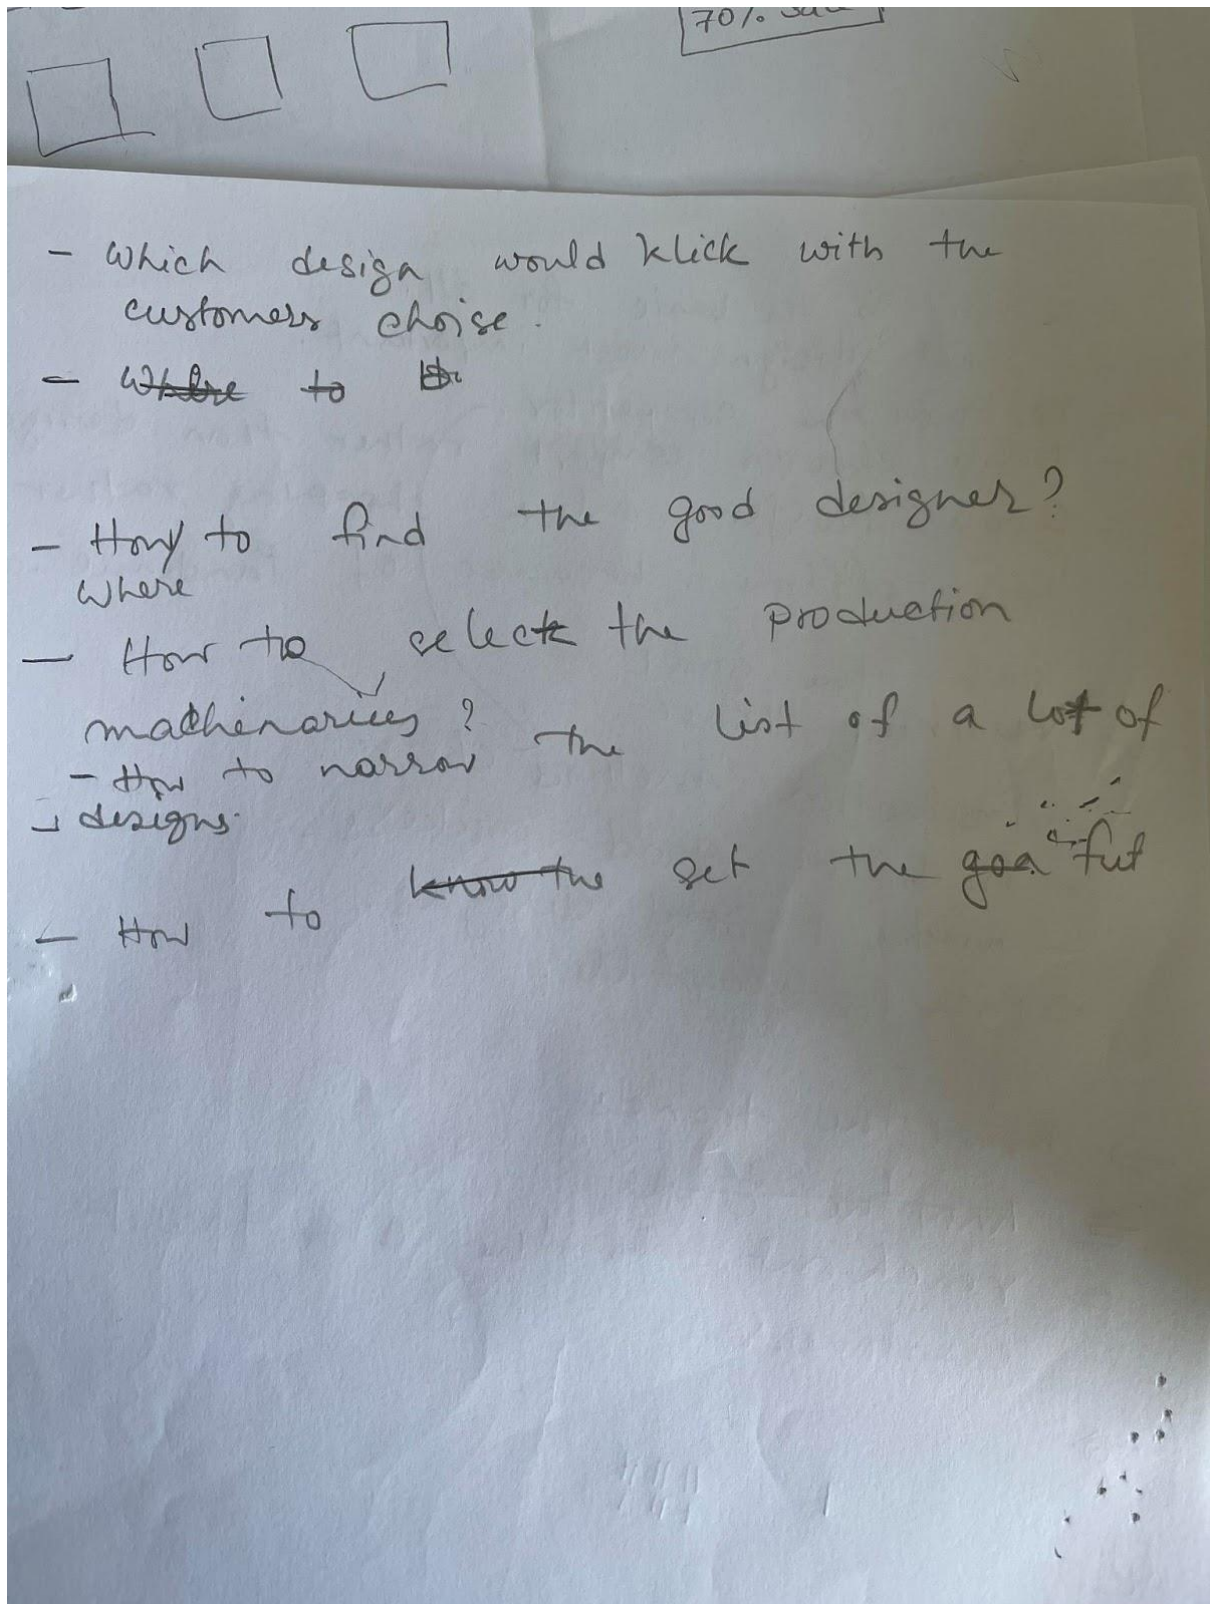 70%
- Which design would klick with the
customers choise.
- Where to
- How to find the good designer?
where
- How to select the production
mathinaries?
- How to narrow the list of a lot of
designs.
- How to know the set the goa fut